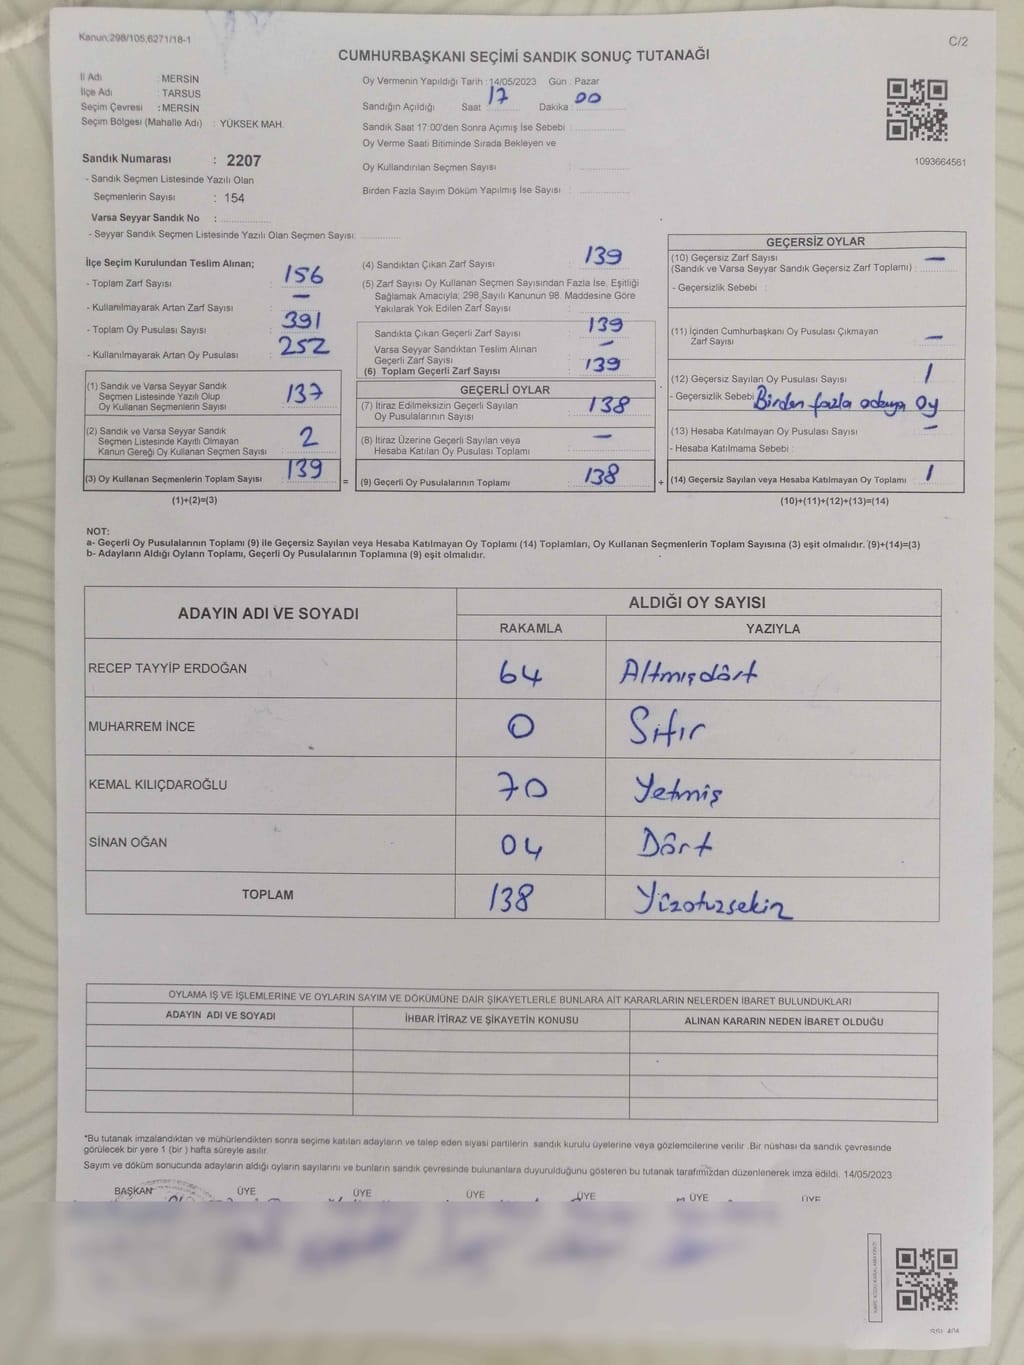 Kanun.298/105,6271/18-1
C/2
CUMHURBAŞKANI SEÇİMİ SANDIK SONUÇ TUTANAĞI
İl Adı : MERSİN
İlçe Adı : TARSUS
Seçim Çevresi : MERSİN
Seçim Bölgesi (Mahalle Adı) : YÜKSEK MAH.
Sandık Numarası : 2207
- Sandık Seçmen Listesinde Yazılı Olan
Seçmenlerin Sayısı : 154
Varsa Seyyar Sandık No :
- Seyyar Sandık Seçmen Listesinde Yazılı Olan Seçmen Sayısı:
Oy Vermenin Yapıldığı Tarih :14/05/2023 Gün : Pazar
Sandığın Açıldığı Saat 17 Dakika : 00
Sandık Saat 17:00'den Sonra Açımış İse Sebebi :
Oy Verme Saati Bitiminde Sırada Bekleyen ve
Oy Kullandırılan Seçmen Sayısı :
Birden Fazla Sayım Döküm Yapılmış İse Sayısı :
1093664561
İlçe Seçim Kurulundan Teslim Alınan;
- Toplam Zarf Sayısı : 156
- Kullanılmayarak Artan Zarf Sayısı : —
- Toplam Oy Pusulası Sayısı : 391
- Kullanılmayarak Artan Oy Pusulası : 252
(1) Sandık ve Varsa Seyyar Sandık
Seçmen Listesinde Yazılı Olup
Oy Kullanan Seçmenlerin Sayısı : 137
(2) Sandık ve Varsa Seyyar Sandık
Seçmen Listesinde Kayıtlı Olmayan
Kanun Gereği Oy Kullanan Seçmen Sayısı : 2
(3) Oy Kullanan Seçmenlerin Toplam Sayısı : 139
(1)+(2)=(3)
(4) Sandıktan Çıkan Zarf Sayısı : 139
(5) Zarf Sayısı Oy Kullanan Seçmen Sayısından Fazla İse, Eşitliği
Sağlamak Amacıyla; 298 Sayılı Kanunun 98. Maddesine Göre
Yakılarak Yok Edilen Zarf Sayısı :
Sandıkta Çıkan Geçerli Zarf Sayısı : 139
Varsa Seyyar Sandıktan Teslim Alınan
Geçerli Zarf Sayısı : —
(6) Toplam Geçerli Zarf Sayısı : 139
GEÇERLİ OYLAR
(7) İtiraz Edilmeksizin Geçerli Sayılan
Oy Pusulalarının Sayısı : 138
(8) İtiraz Üzerine Geçerli Sayılan veya
Hesaba Katılan Oy Pusulası Toplamı : —
= (9) Geçerli Oy Pusulalarının Toplamı : 138
GEÇERSİZ OYLAR
(10) Geçersiz Zarf Sayısı —
(Sandık ve Varsa Seyyar Sandık Geçersiz Zarf Toplamı) :
- Geçersizlik Sebebi :
(11) İçinden Cumhurbaşkanı Oy Pusulası Çıkmayan
Zarf Sayısı : —
(12) Geçersiz Sayılan Oy Pusulası Sayısı : 1
- Geçersizlik Sebebi : Birden fazla adaya oy
(13) Hesaba Katılmayan Oy Pusulası Sayısı : —
- Hesaba Katılmama Sebebi :
+ (14) Geçersiz Sayılan veya Hesaba Katılmayan Oy Toplamı : 1
(10)+(11)+(12)+(13)=(14)
NOT:
a- Geçerli Oy Pusulalarının Toplamı (9) ile Geçersiz Sayılan veya Hesaba Katılmayan Oy Toplamı (14) Toplamları, Oy Kullanan Seçmenlerin Toplam Sayısına (3) eşit olmalıdır. (9)+(14)=(3)
b- Adayların Aldığı Oyların Toplamı, Geçerli Oy Pusulalarının Toplamına (9) eşit olmalıdır.
ADAYIN ADI VE SOYADI
ALDIĞI OY SAYISI
RAKAMLA YAZIYLA
RECEP TAYYİP ERDOĞAN 64 Altmışdört
MUHARREM İNCE 0 Sıfır
KEMAL KILIÇDAROĞLU 70 Yetmiş
SİNAN OĞAN 04 Dört
TOPLAM 138 Yüzotuzsekiz
OYLAMA İŞ VE İŞLEMLERİNE VE OYLARIN SAYIM VE DÖKÜMÜNE DAİR ŞİKAYETLERLE BUNLARA AİT KARARLARIN NELERDEN İBARET BULUNDUKLARI
ADAYIN ADI VE SOYADI İHBAR İTİRAZ VE ŞİKAYETİN KONUSU ALINAN KARARIN NEDEN İBARET OLDUĞU
*Bu tutanak imzalandıktan ve mühürlendikten sonra seçime katılan adayların ve talep eden siyasi partilerin sandık kurulu üyelerine veya gözlemcilerine verilir .Bir nüshası da sandık çevresinde
görülecek bir yere 1 (bir ) hafta süreyle asılır.
Sayım ve döküm sonucunda adayların aldığı oyların sayılarını ve bunların sandık çevresinde bulunanlara duyurulduğunu gösteren bu tutanak tarafımızdan düzenlenerek imza edildi. 14/05/2023
BAŞKAN ÜYE ÜYE ÜYE ÜYE ÜYE ÜYE